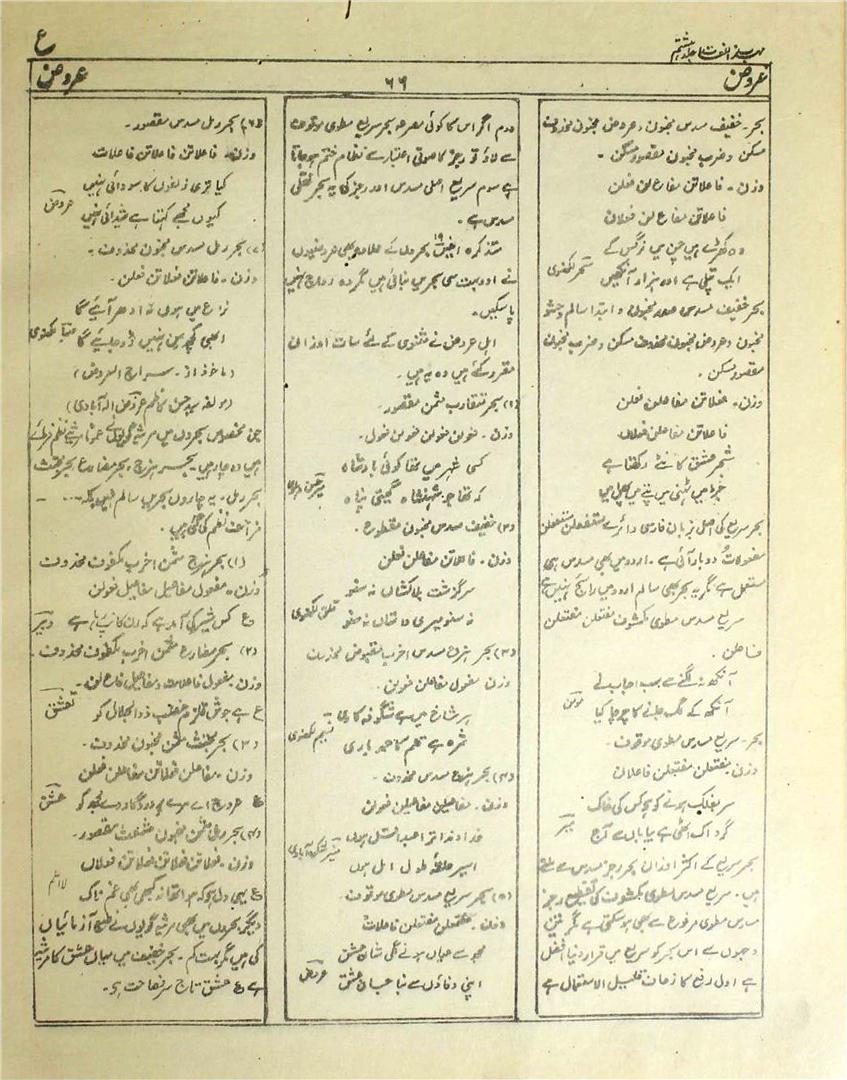 مہذب اللغات جلد ہشتم
ع
عروض
۶۶
عروض
بحر۔ خفیف مسدس مخبون، و عروض مخبون محذوف
مسکن و ضرب مخبون مقصور مسکن۔
وزن۔ فاعلاتن مفاعلن فعلن
فاعلاتن مفاعلن فعلان
وہ کھڑے ہیں چمن میں نرگس کے
ایک پتلی ہے اور ہزار آنکھیں سحر لکھنوی
بحر خفیف مسدس صدر مخبون و ابتدا سالم و حشو
مخبون و عروض مخبون محذوف مسکن و ضرب مخبون
مقصور مسکن۔
وزن۔ فعلاتن مفاعلن فعلن
فاعلاتن مفاعلن فعلان
شجر عشق کانٹے رکھتا ہے
جڑ میں ٹہنی میں پتے میں پھل میں
بحر سریع کی اصل بزبان فارسی دائرے مستفعلن مستفعلن
مفعولات دو بار آئی ہے۔ اردو میں بھی مسدس ہی
مستعمل ہے مگر یہ بحر بھی سالم اردو میں رائج نہیں ہے
سریع مسدس مطوی مکشوف مفتعلن مفتعلن
فاعلن۔
آنکھ نہ لگنے سے سب احباب نے
آنکھ کے لگ جانے کا چرچا کیا مومن
بحر۔ سریع مسدس مطوی موقوف۔
وزن مفتعلن مفتعلن فاعلان
سر بفلک ہونے کو ہے کس کی خاک
گرد اک اٹھی ہے بیاباں سے آج میر
بحر سریع کے اکثر اوزان بحر رجز مسدس سے ملتے
ہیں۔ سریع مسدس مطوی مکشوف کی تقطیع رجز
مسدس مطوی مرفوع سے بھی ہو سکتی ہے مگر تین
وجہوں سے اس بحر کو سریع میں قرار دینا افضل
ہے اول رفع کا زحاف قلیل الاستعمال ہے
دوم اگر اس کا کوئی مصرعہ بحر سریع مطوی موقوف
سے لاؤ تو رجز کا صوتی اعتبار سے نظام ختم ہو جاتا
ہے سوم سریع اصلی مسدس اور رجز کی یہ بحر نقلی
مسدس ہے۔
متذکرہ انیس ۱۹ بحروں کے علاوہ بھی عروضیوں
نے اور بہت سی بحریں بنائی ہیں مگر وہ رواج نہیں
پا سکیں۔
اہل عروض نے مثنوی کے لئے سات اوزان
مقرر کئے ہیں وہ یہ ہیں۔
(۱) بحر متقارب مثمن مقصور۔
وزن۔ فعولن فعولن فعولن فعول۔
کسی شہر میں تھا کوئی بادشاہ
کہ تھا وہ شہنشاہ گیتی پناہ میر حسن دہلوی
(۲) خفیف مسدس مخبون مقطوع۔
وزن۔ فاعلاتن مفاعلن فعلن
سرگزشت بلاکشاں نہ سنو
نہ سنو میری داستاں نہ سنو قلق لکھنوی
(۳) بحر ہزج مسدس اخرب مقبوض محذوف
وزن مفعول مفاعلن فعولن۔
ہر شاخ میں ہے شگوفہ کاری
ثمرہ ہے قلم کا حمد باری نسیم لکھنوی
(۴) بحر ہزج مسدس محذوف۔
وزن۔ مفاعیلن مفاعیلن فعولن
خداوندا ترا عبد اذل ہوں
اسیر حلقۂ طول امل ہوں
(۵) بحر سریع مسدس مطوی موقوف۔
وزن۔ مفتعلن مفتعلن فاعلات
مجھ سے عیاں ہونے لگی شان عشق
اپنی وفاؤں سے بنا جان عشق عروض
(۶) بحر رمل مسدس مقصور۔
وزن۔ فاعلاتن فاعلاتن فاعلات
کیا تری زلفوں کا سودائی نہیں
کیوں مجھے کہتا ہے شیدائی نہیں عروض
(۷) بحر رمل مسدس مخبون محذوف۔
وزن۔ فاعلاتن فعلاتن فعلن۔
نزع میں ہوں نہ ادھر آئیے گا
ابھی کچھ سن نہیں ڈر جائیے گا
(ماخوذ از۔ سراج العروض)
(مولفہ سید حسن کاظم عروض الہ آبادی)
جن مخصوص بحروں میں مرثیہ گویوں نے عموماً مرثیے نظم فرمائے
ہیں وہ چار ہیں۔ بحر ہزج۔ بحر مضارع۔ بحر مجتث
بحر رمل۔ یہ چاروں بحریں سالم نہیں بلکہ ....
مزاحف نظم کی گئی ہیں۔
(۱) بحر ہزج مثمن اخرب مکفوف محذوف
وزن۔ مفعول مفاعیل مفاعیل فعولن
ع کس شیر کی آمد ہے کہ رن کانپ رہا ہے دبیر
(۲) بحر مضارع مثمن اخرب مکفوف محذوف۔
وزن مفعول فاعلات مفاعیل فاعلن۔
ع ہے جوش قلزم غضب ذوالجلال کو تعشق
(۳) بحر مجتث مثمن مخبون محذوف۔
وزن۔ مفاعلن فعلاتن مفاعلن فعلن
ع عروج اے مرے پروردگار دے مجھ کو عشق
(۴) بحر رمل مثمن مخبون مشعث مقصور۔
وزن۔ فعلاتن فعلاتن فعلاتن فعلان
ع یہی دل ہے کہ جو اتنا نہ کبھی تھا غم ناک لااعلم
دیگر بحروں میں بھی مرثیہ گویوں نے طبع آزمائیاں
کی ہیں مگر بہت کم۔ بحر خفیف میں میاں عشق کا مرثیہ
ہے ع عشق تاج سر فصاحت ہے۔